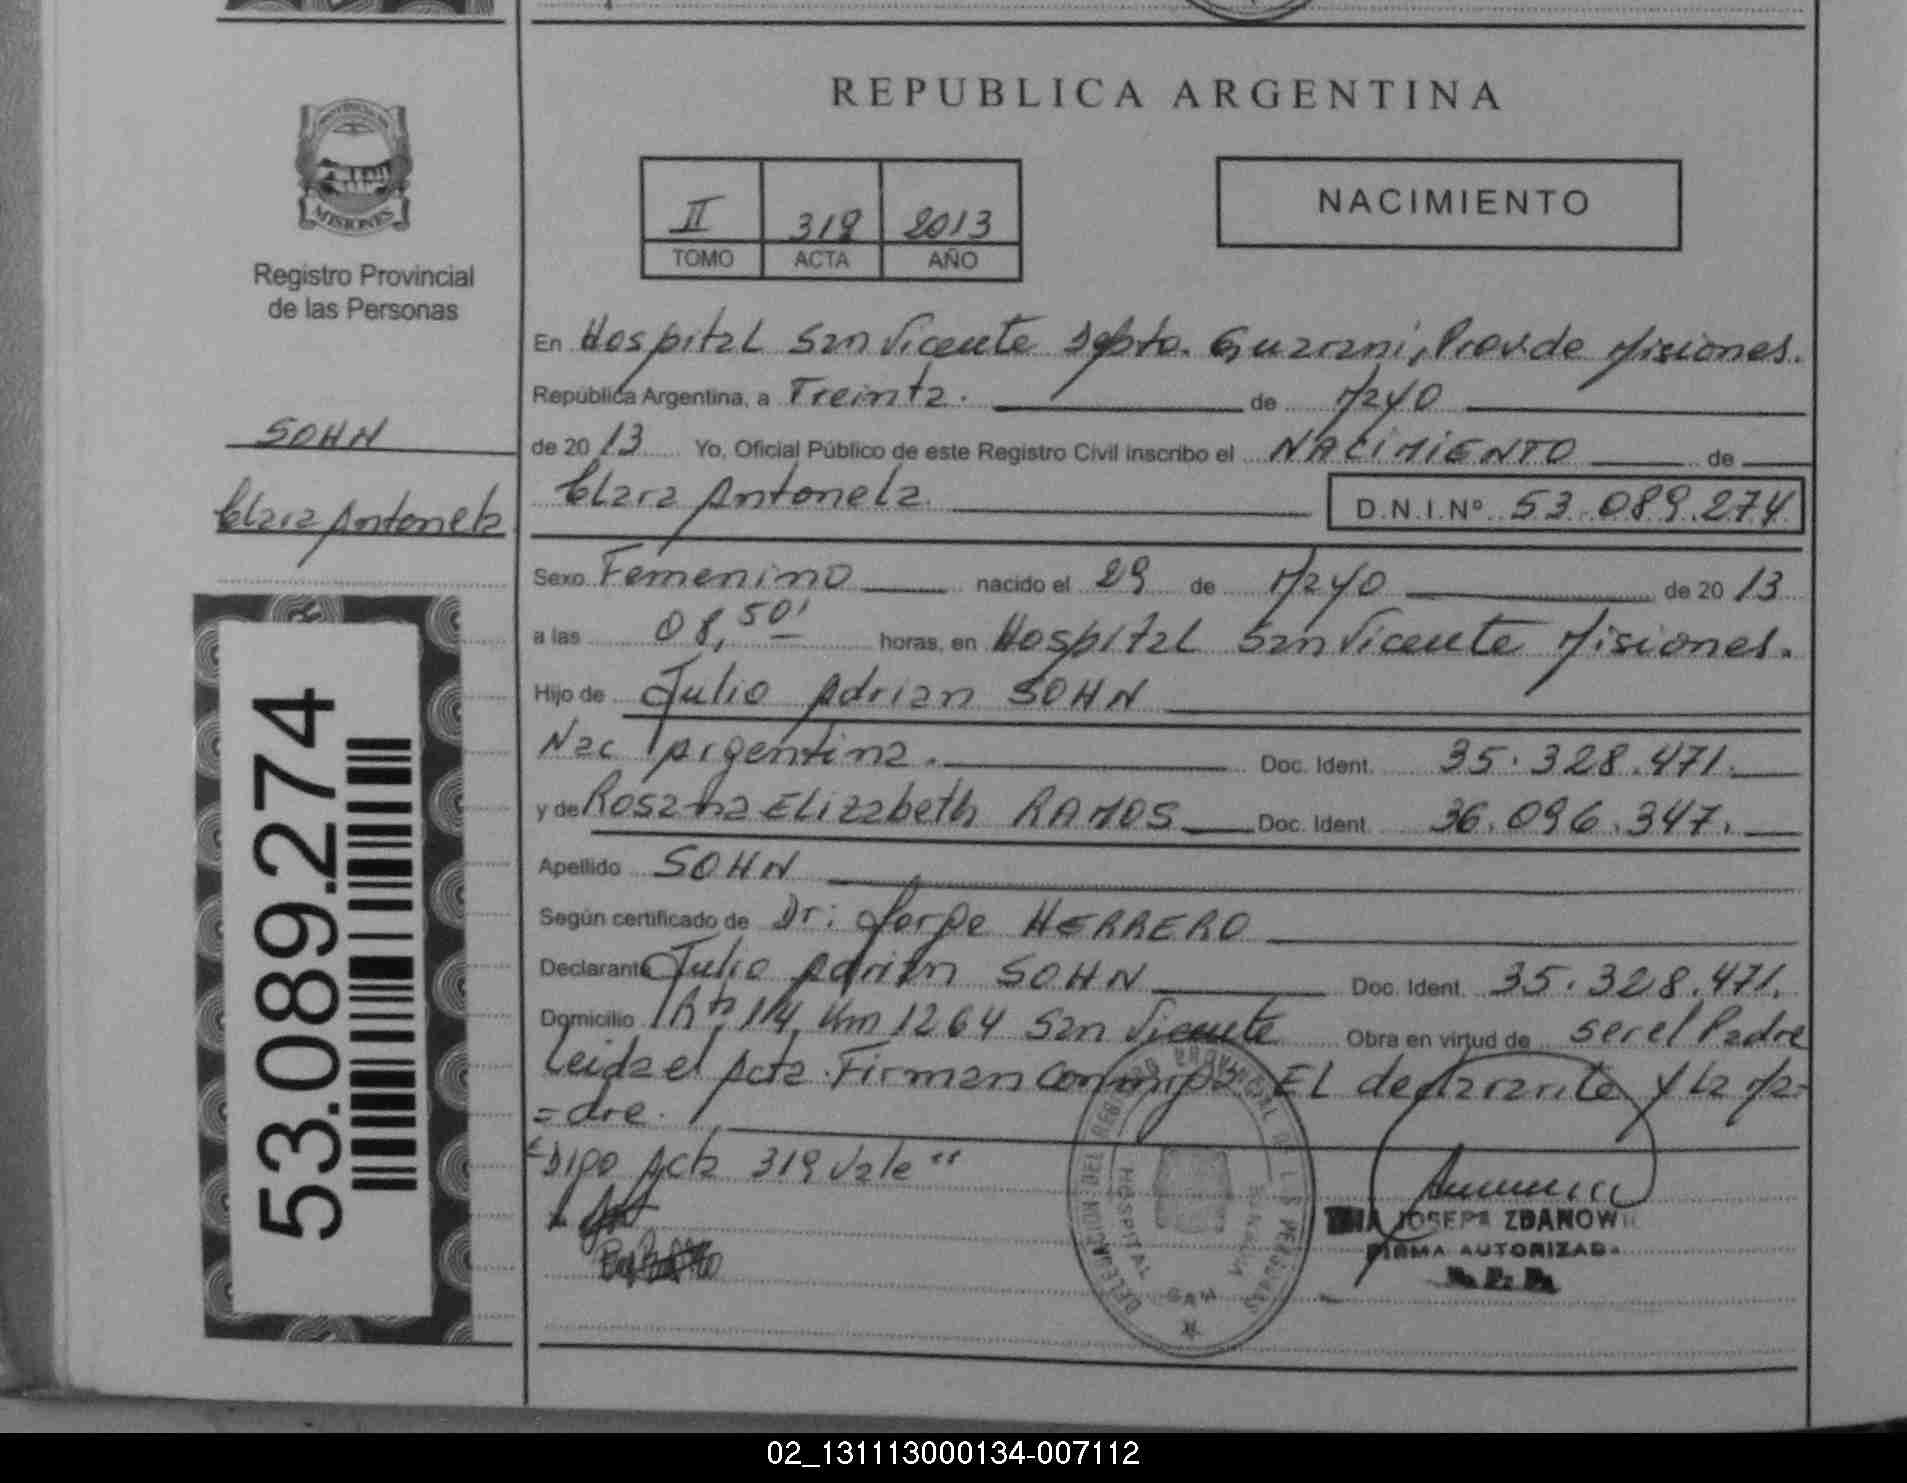 REPUBLICA ARGENTINA
MISIONES
Registro Provincial
de las Personas
II 319 2013
TOMO ACTA AÑO
NACIMIENTO
En Hospital San Vicente Dpto. Guarani, Prov. de Misiones.
República Argentina, a Treinta. de Mayo
de 2013 Yo, Oficial Público de este Registro Civil inscribo el NACIMIENTO de
SOHN
Clara Antonela
Clara Antonela. D.N.I.Nº 53.089.274
Sexo Femenino nacido el 29 de Mayo de 2013
a las 08,50' horas, en Hospital San Vicente Misiones.
Hijo de Julio Adrian SOHN
Nac Argentina. Doc. Ident. 35.328.471.
y de Rosana Elizabeth RAMOS Doc. Ident. 36.096.347.
Apellido SOHN
Según certificado de Dr: Jorge HERRERO
Declarante Julio Adrian SOHN Doc. Ident. 35.328.471.
Domicilio Rta. 14 Km 1264 San Vicente Obra en virtud de ser el Padre
Leida el Acta Firman conmigo EL declarante y la Ma-
=dre.
"Digo Acta 319 Vale"
53.089.274
DELEGACION DEL REGISTRO PROVINCIAL DE LAS PERSONAS
HOSPITAL SAN VICENTE
JOSEFA ZDANOW
FIRMA AUTORIZADA
02_131113000134-007112